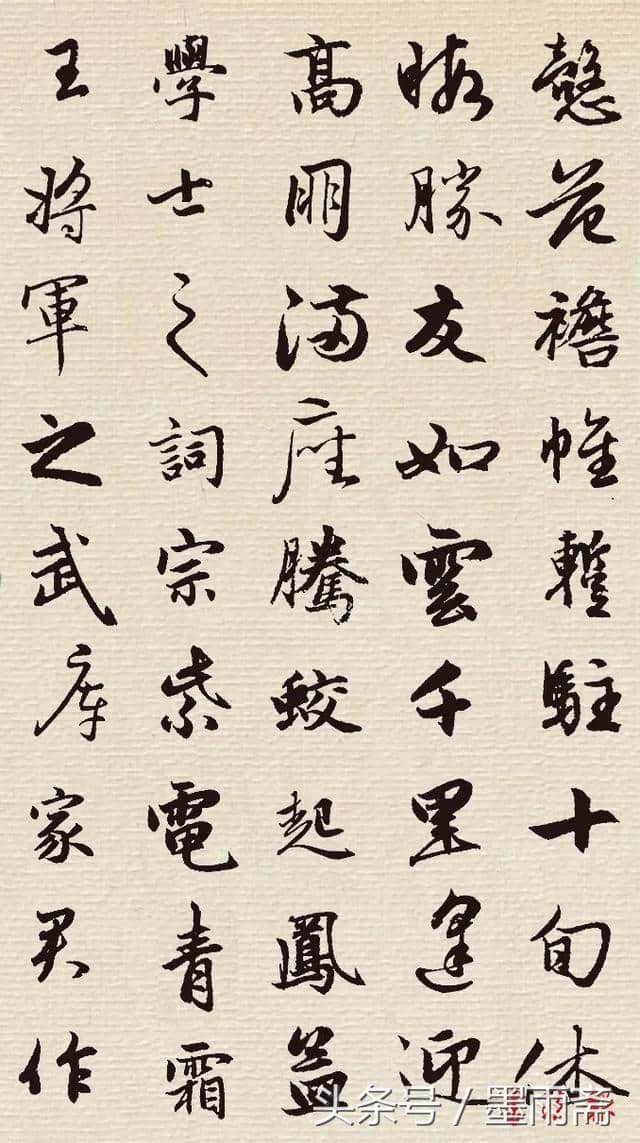 懿范襜帷暫駐十旬休
暇勝友如雲千里逢迎
高朋滿座騰蛟起鳳孟
學士之詞宗紫電青霜
王將軍之武庫家君作
头条号 / 墨雨斋